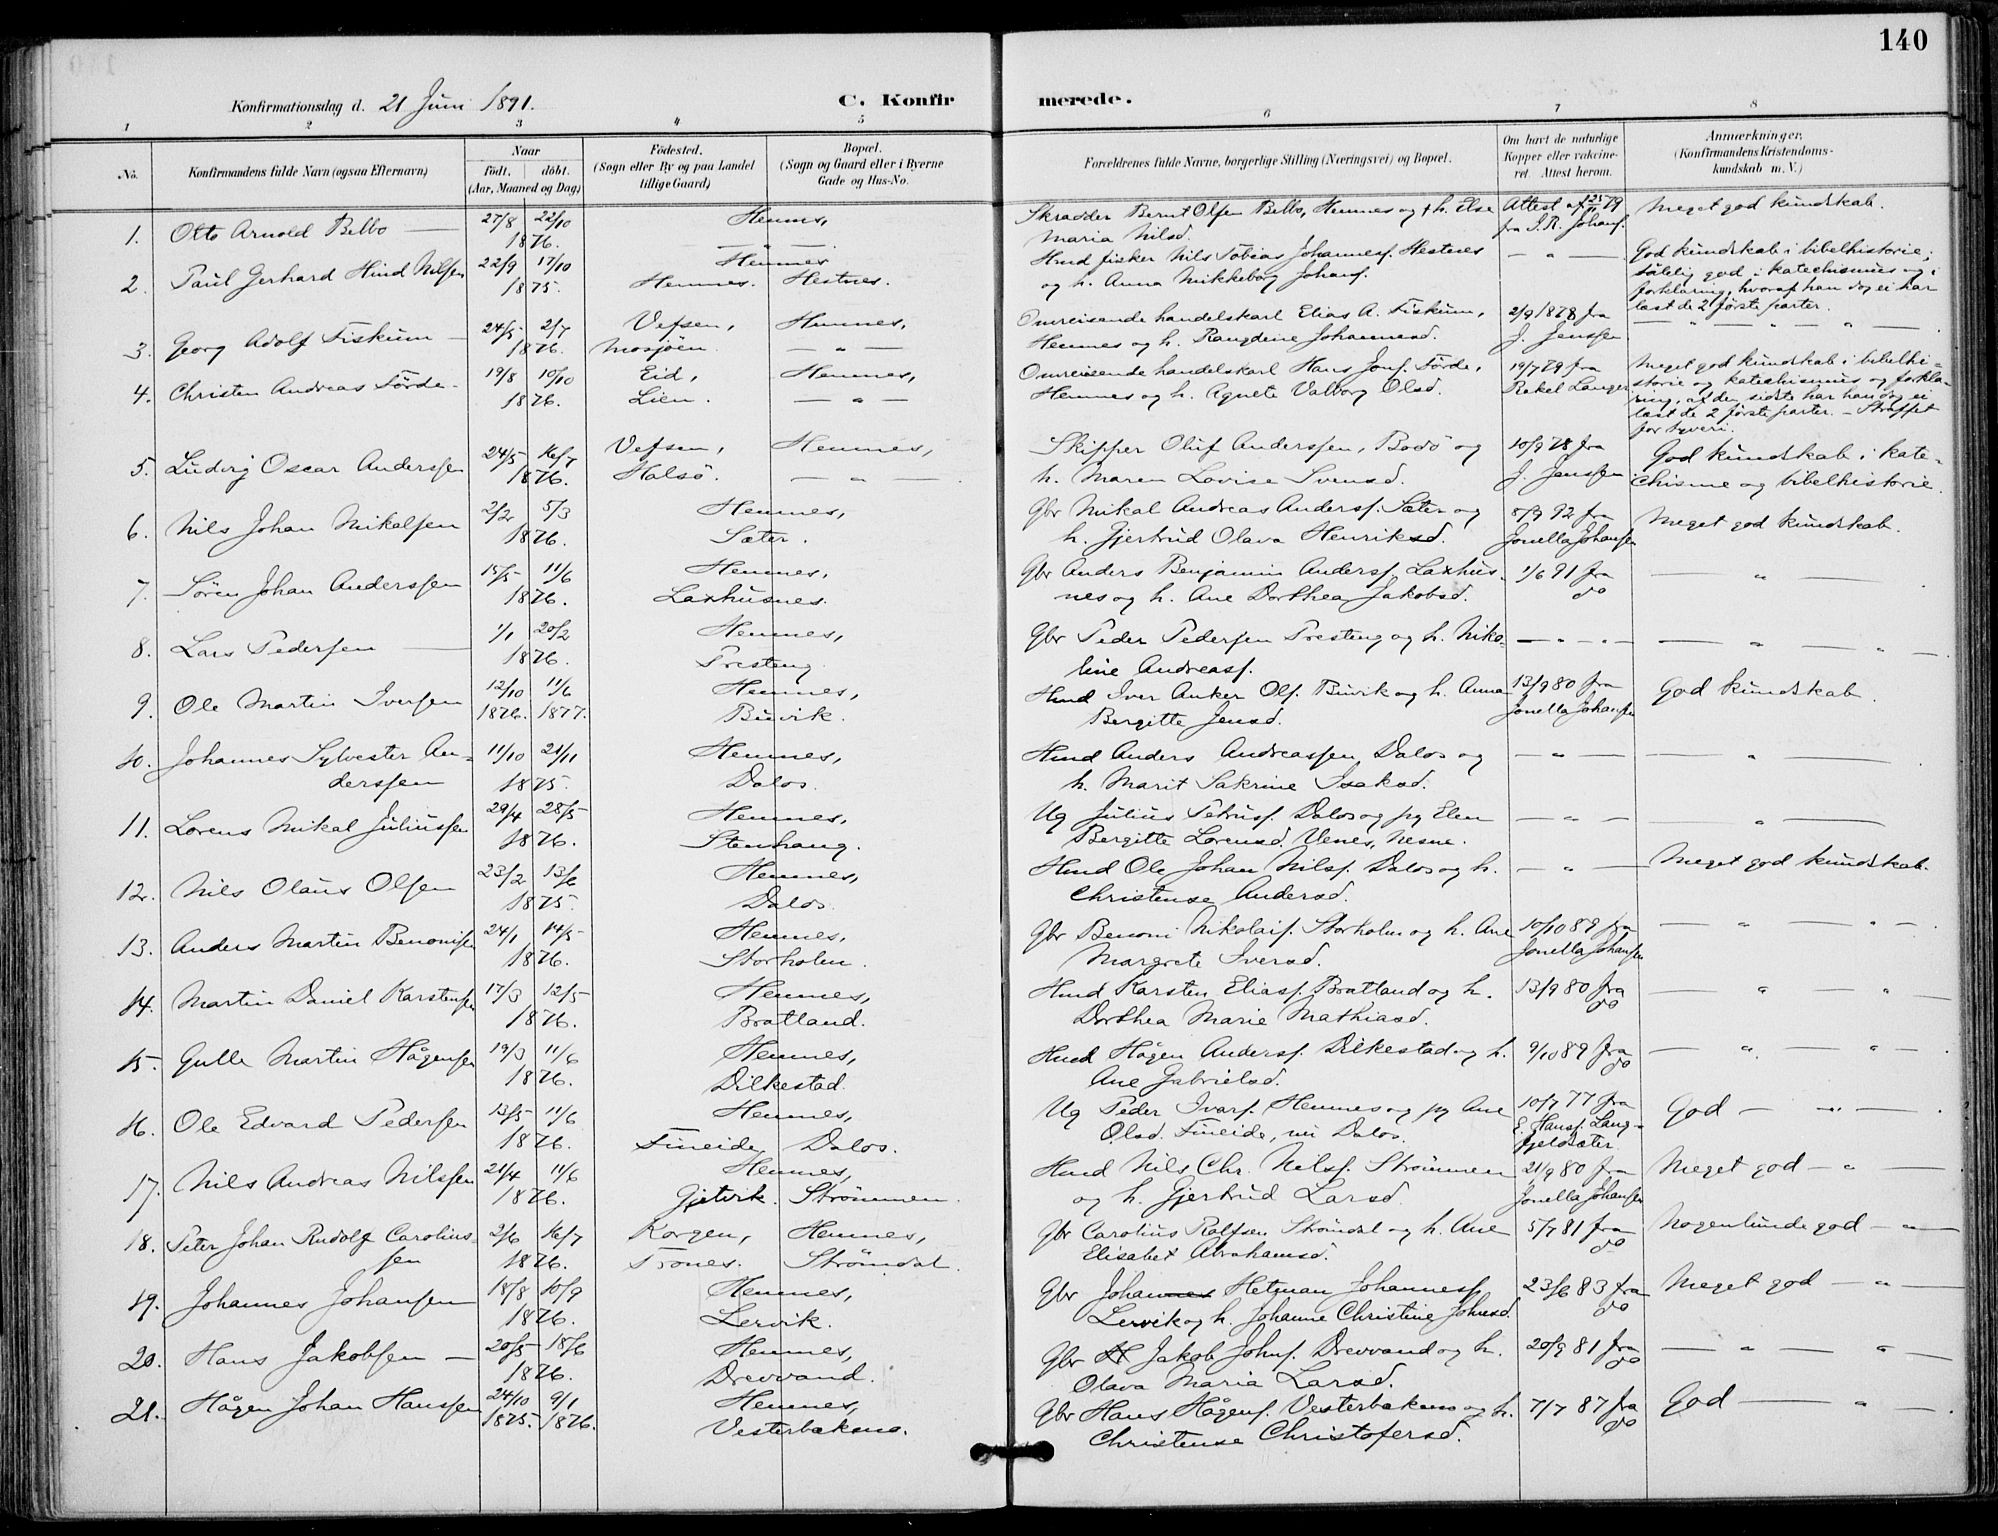 140
Konfirmationsdag d. 21 Juni 1891.
C. Konfirmerede.
1 2 3 4 5 6 7 8
No.
Konfirmandens fulde Navn (ogsaa Efternavn)
Naar
födt. döbt.
(Aar, Maaned og Dag)
Födested.
(Sogn eller By og paa Landet
tillige Gaard)
Bopæl.
(Sogn og Gaard eller i Byerne
Gade og Hus-No.
Forældrenes fulde Navne, borgerlige Stilling (Næringsvei) og Bopæl.
Om havt de naturlige
Kopper eller vakcine-
ret. Attest herom.
Anmærkninger.
(Konfirmandens Kristendoms-
kundskab m. V.)
1. Otto Arnold Belbo — 27/8 22/10 Hemnes, Skradder Bernt Olsen Belbo, Hemnes og † h. Else Attest af 79 Meget god kundskab.
1876. — " — Maria Nilsd. fra J. R. Johansf.
2. Paul Gerhard Hind Nilsen 22/9 17/10 Hemnes Hmd fisker Nils Tobias Johannesf. Hestnes — " — God kundskab i bibelhistorie;
1875. Hemnes. Hestnes. og h. Anna Mikkeborg Johansf. tålelig god i katechismus og i
forklaring, hvoraf han dog ei har
læst de 2 förste parter.
3. Georg Adolf Fiskum — 24/5 2/7 Vefsen, Hemnes, Omreisende handelskarl Elias A. Fiskum, 2/9 1878 fra — " — " — " —
1876. Mosjöen. — " — Hemnes og h. Rangdine Johannesd. J. Jenssen
4. Christen Andreas Förde. 19/8 10/10 Eid, Hemnes, Omreisende handelskarl Hans Jonf. Förde, 19/7 79 fra Meget god kundskab i bibelhi-
1876. Lien. — " — Hemnes og h. Agnete Valborg Olsd. Rakel Langer storie og katechismus og forkla-
ring, af den sidste har han dog ei
læst de 2 förste parter. — Straffet
for tyveri.
5. Ludvig Oscar Anderssen 24/5 16/7 Vefsen, Hemnes, Skipper Oluf Anderssen, Bodö og 10/9 78 fra God kundskab i kate-
1876. Halsö. — " — h. Maren Lovise Svensd. J. Jenssen chisme og bibelhistorie.
6. Nils Johan Mikalsen 2/2 5/3 Hemnes, Gbr Mikal Andreas Andersf. Sæter og 8/9 92 fra Meget god kundskab.
1876. Sæter. h. Gjertrud Olava Henriksd. Jonella Johansen
7. Sören Johan Anderssen 15/5 11/6 Hemnes, Gbr Anders Benjamin Andersf. Laxhus- 1/6 91 fra — " —
1876. Laxhusnes. nes og h. Ane Dorthea Jakobsd. do
8. Lars Pedersen — 1/1 20/2 Hemnes, Gbr Peder Pedersen Tresteng og h. Niko- — " — — " — " —
1876. Tresteng. line Andreasf.
9. Ole Martin Iversen 12/10 11/6 Hemnes, Hmd Iver Anker Olf. Buvik og h. Anna 13/9 80 fra God kundskab.
1876. 1877. Buvik. Bergitte Jensd. Jonella Johansen
10. Johannes Sylvester An- 11/10 21/11 Hemnes, Hmd Anders Andreassen Dalos og — " — — " —
derssen 1875. Dalos. h. Marit Sakrine Isaksd.
11. Lorens Mikal Juliussen 29/4 28/5 Hemnes, Ug Julius Petrusf. Dalos og pg Elen — " — — " —
1876. Stenhaug. Bergitte Lorensd. Venes, Nesne.
12. Nils Olaus Olsen 23/2 13/6 Hemnes, Hmd Ole Johan Nilsf. Dalos og h. — " — Meget god kundskab.
1875. Dalos. Christense Andersd.
13. Anders Martin Benonisen 24/1 14/5 Hemnes, Gbr Benoni Nikolaif. Storholm og h. Ane 10/10 89 fra — " — " —
1876. Storholm. Margrete Iversd. Jonella Johansen
14. Martin Daniel Karstensen 17/3 12/5 Hemnes, Hmd Karsten Eliasf. Bratland og h. 13/9 80 fra — " — " —
1876. Bratland. Dorthea Marie Mathiasd. do
15. Gulle Martin Hågensen 19/3 11/6 Hemnes, Hmd Hågen Andersf. Dilkestad og h. 9/10 89 fra — " — " —
1876. Dilkestad. Ane Gabrielsd. do
16. Ole Edvard Pedersen 13/5 11/6 Hemnes, Ug Peder Ivarf. Hemnes og pg Ane 10/7 77 fra God — " — .
1876. Fineide, Dalos. Olsd. Fineide, nu Dalos. E. Hansf. Lang-
fjeldsæter
17. Nils Andreas Nilssen 21/4 11/6 Hemnes, Hmd Nils Chr. Nilsf. Strömmen 21/9 80 fra Meget god — " —
1876. Strömmen. og h. Gjertrud Larsd. Jonella Johansen
18. Peter Johan Rudolf Carolius- 2/6 16/7 Korgen, Hemnes, Gbr Carolius Rolfsen Strömdal og h. Ane 5/7 81 fra Nogenlunde god — " —
sen 1876. Trones. Strömdal. Elisabet Abrahamsd. do
19. Johannes Johansen 18/8 10/9 Hemnes, Gbr Johannes Hetman Johannesf. 23/6 83 fra Meget god — " —
1876. Lervik. Lervik og h. Johanne Christine Johnsd. do
20. Hans Jakobsen — 20/5 18/6 Hemnes, Gbr H Jakob Johnf. Drevvand og h. 20/9 81 fra — " — " —
1876. Drevvand. Olava Maria Larsd. do
21. Hågen Johan Hanssen 24/10 9/1 Hemnes, Gbr Hans Hågenf. Vesterbakmo og h. 7/7 87 fra God — " — .
1875. 1876. Vesterbakmo. Christense Christofersd. do